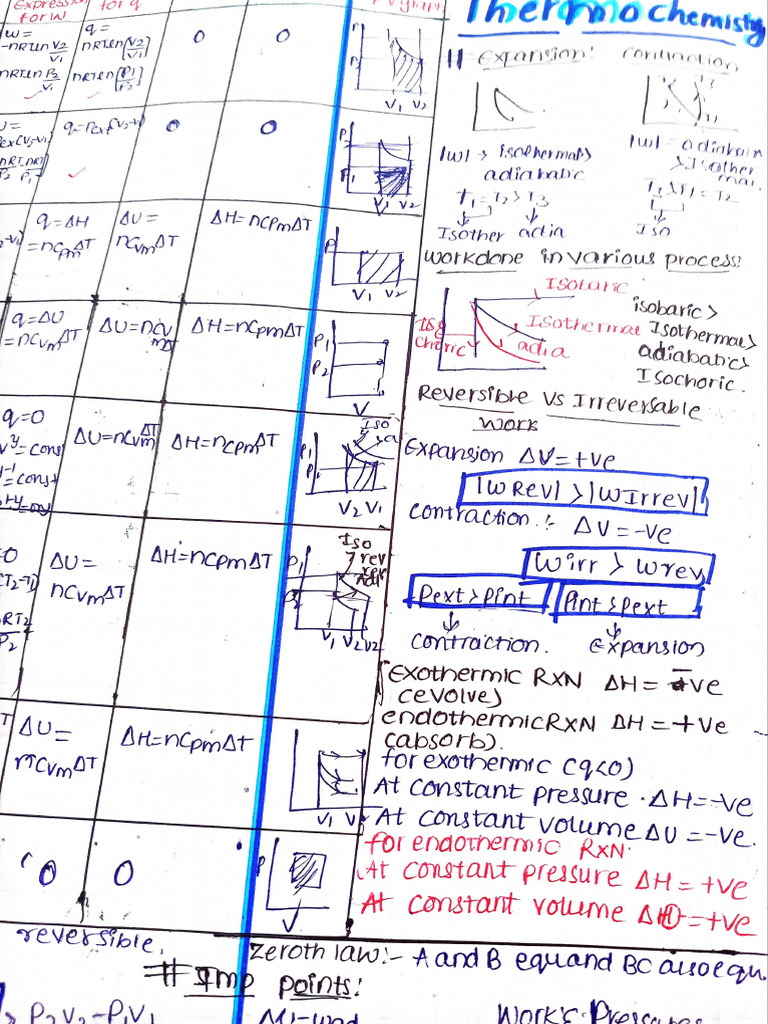 Expression for W
for q
PV graph
Thermochemistry
W = -nRTln V2/V1
nRTln P2/V1
q = nRTln(V2/V1)
nRTln(P1/P2)
0
0
V1 V2
q=Pext(V2-V1)
0
0
P1
V1 V2
q=ΔH
=nCpmΔT
ΔU=
nCvmΔT
ΔH=nCpmΔT
P
V1 V2
q=ΔU
=nCvmΔT
ΔU=nCvmΔT
ΔH=nCpmΔT
P1
P2
V
q=0
=const
=const
ΔU=nCvmΔT
ΔH=nCpmΔT
Iso
V2 V1
ΔU=
nCvmΔT
ΔH=nCpmΔT
Iso
rev
P1
V1 V2 V2
RT2
P2
ΔU=
ΔH=nCpmΔT
V1 V2
0
0
P
V
reversible.
# expansion:
contraction
|w| → isothermal>
adiabatic
T1=T2>T3
Isother adia
|w| = adiabatic
>Isother
mal.
Iso
workdone in various process:
Isobaric
Isothermal
adia
Iso
choric
isobaric>
Isothermal>
adiabatic>
Isochoric.
Reversible vs Irreversable
work
Expansion ΔV=+ve
|WRev|>|WIrrev|
contraction :- ΔV=-ve
Wirr > Wrev
Pext>Pint
Pint>Pext
contraction.
Expansion
Exothermic RXN ΔH= -ve
(evolve)
endothermic RXN ΔH=+ve
(absorb).
for exothermic (q<0)
At constant pressure. ΔH=-ve
At constant volume ΔU=-ve.
for endothermic RXN.
At constant pressure ΔH=+ve
At constant volume ΔU=+ve
Zeroth law:- A and B equ and BC also equ.
# Imp points:
P2V2-P1V1